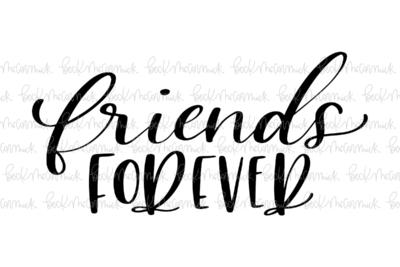 friends
FOREVER